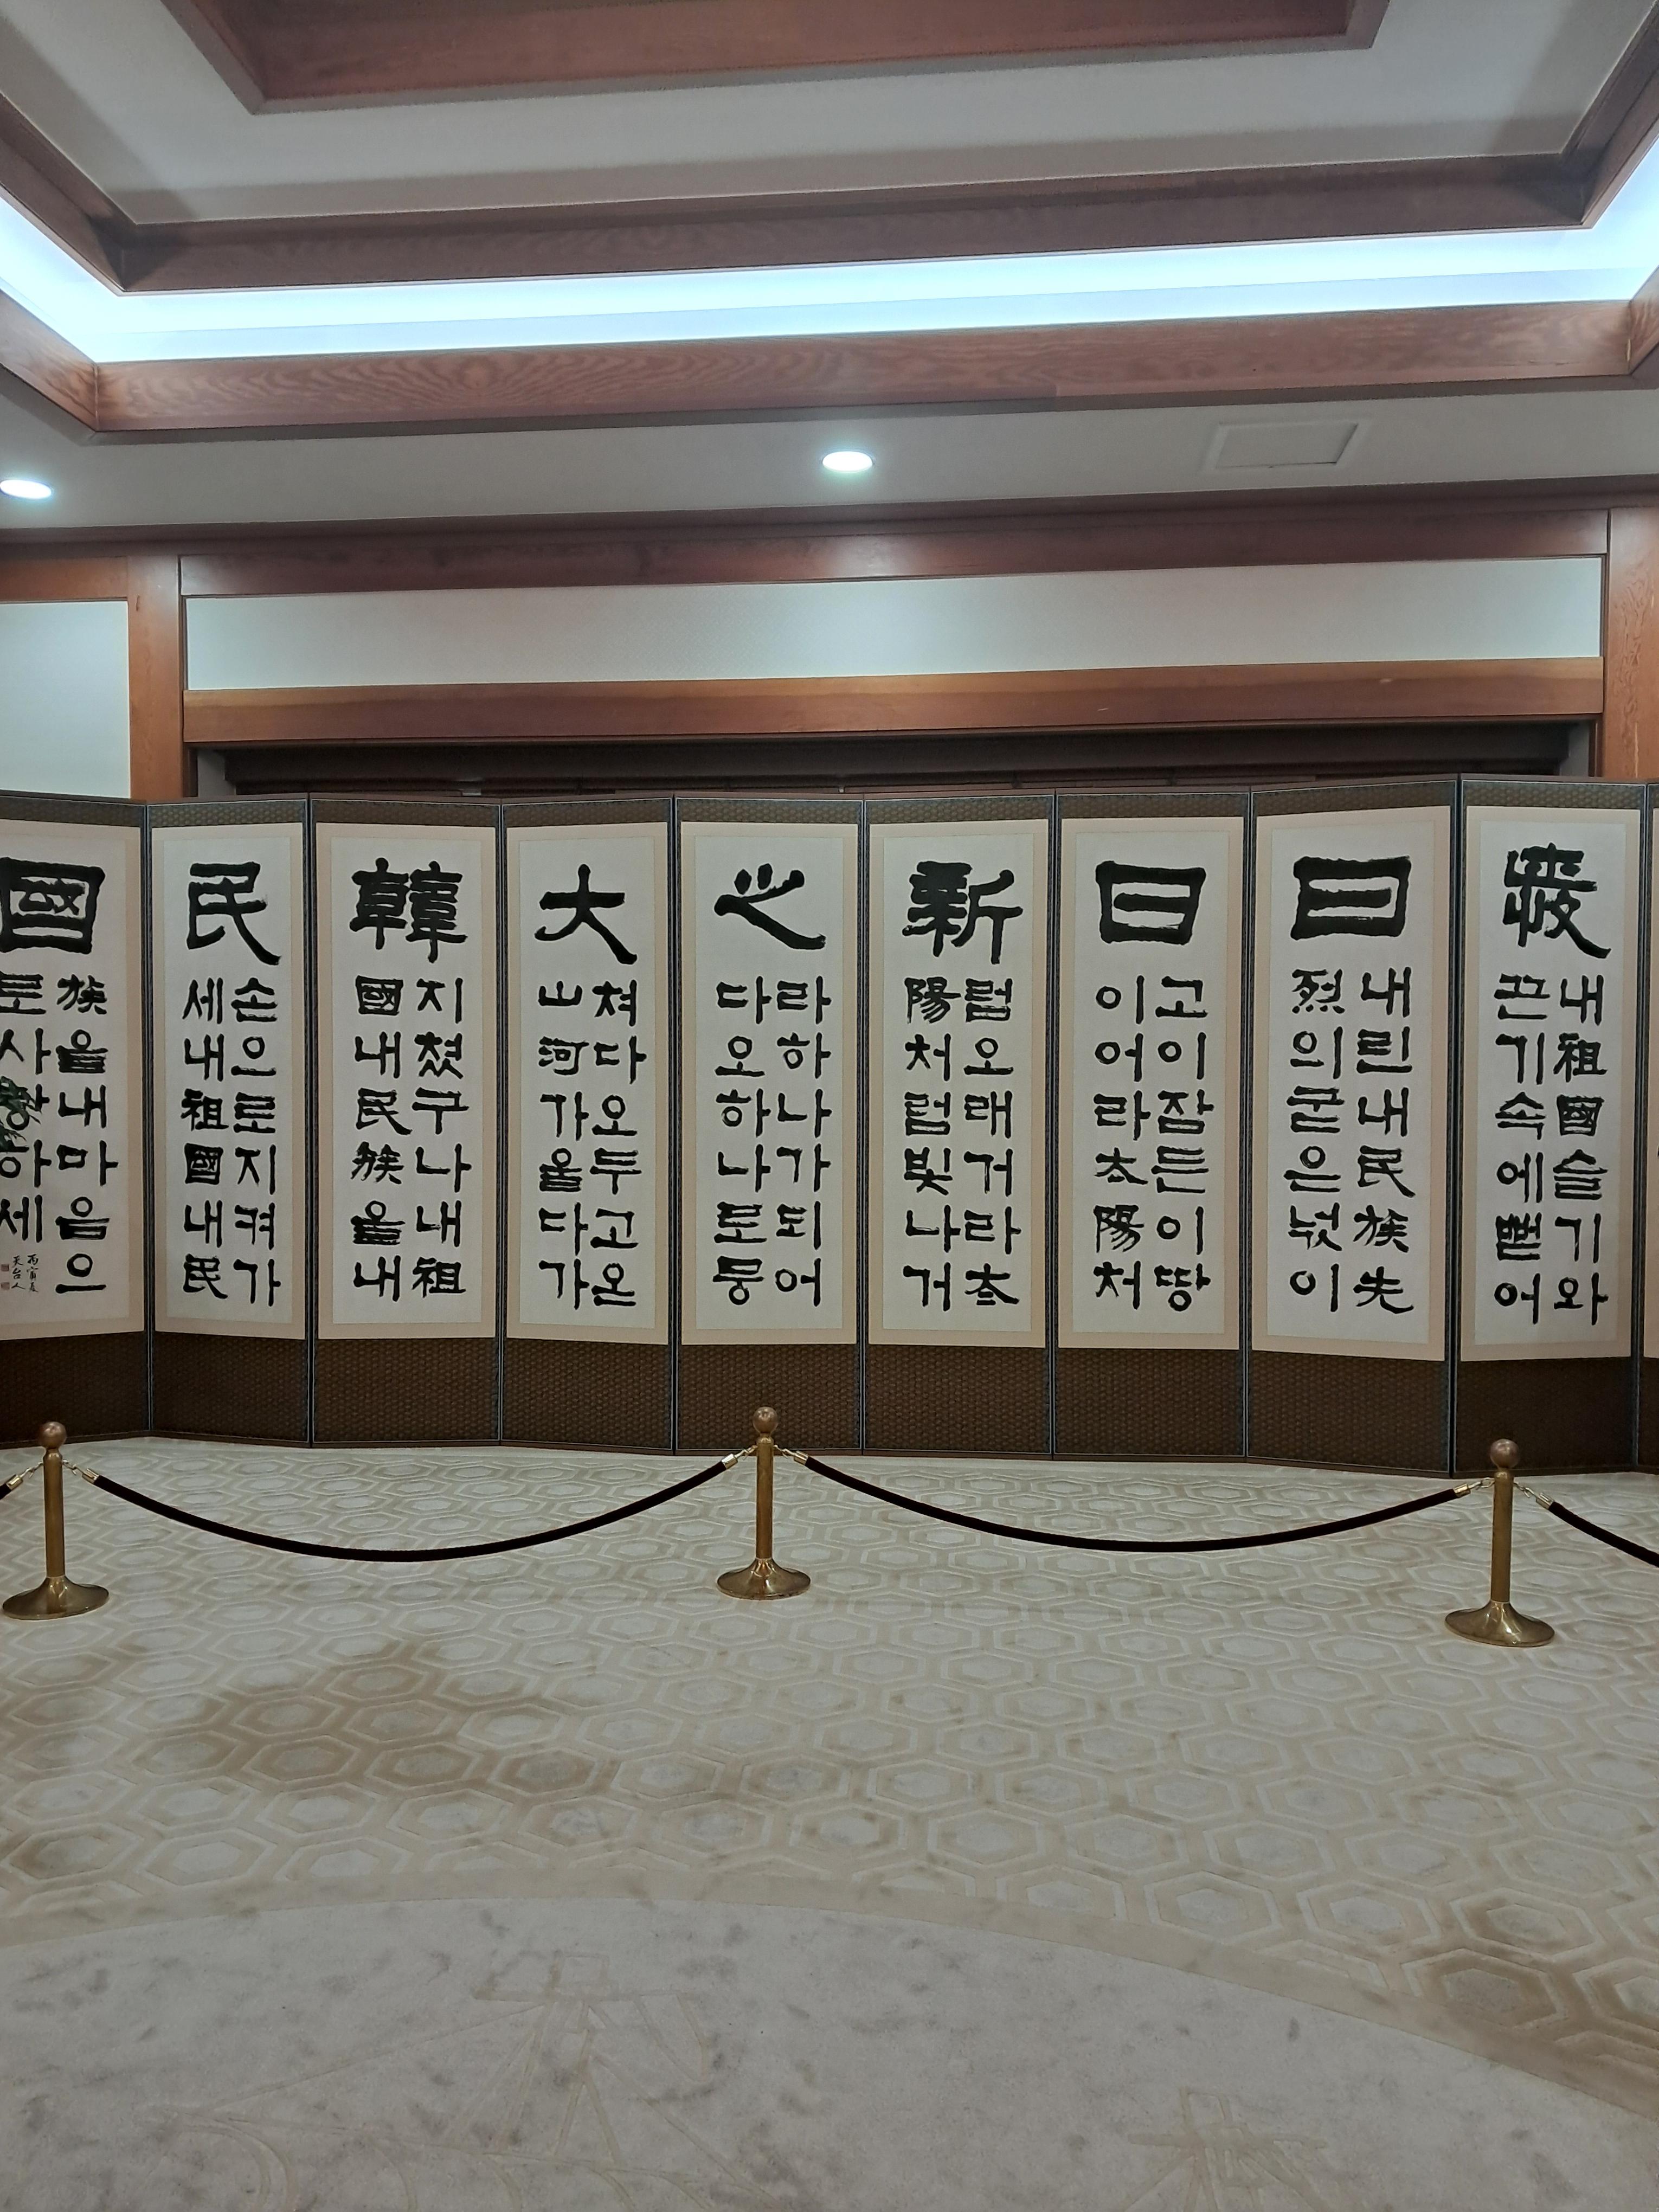 내祖國슬기와
끈기속에뻗어
日
내린내民族先
烈의굳은넋이
日
고이잠든이땅
이어라太陽처
新
럼오래거라太
陽처럼빛나거
之
라하나가되어
다오하나로뭉
大
쳐다오두고온
山河가을다가
韓
지쳤구나내祖
國내民族을내
民
손으로지켜가
세내祖國내民
國
族을내마음으
로사랑하세
丙寅夏
天台人